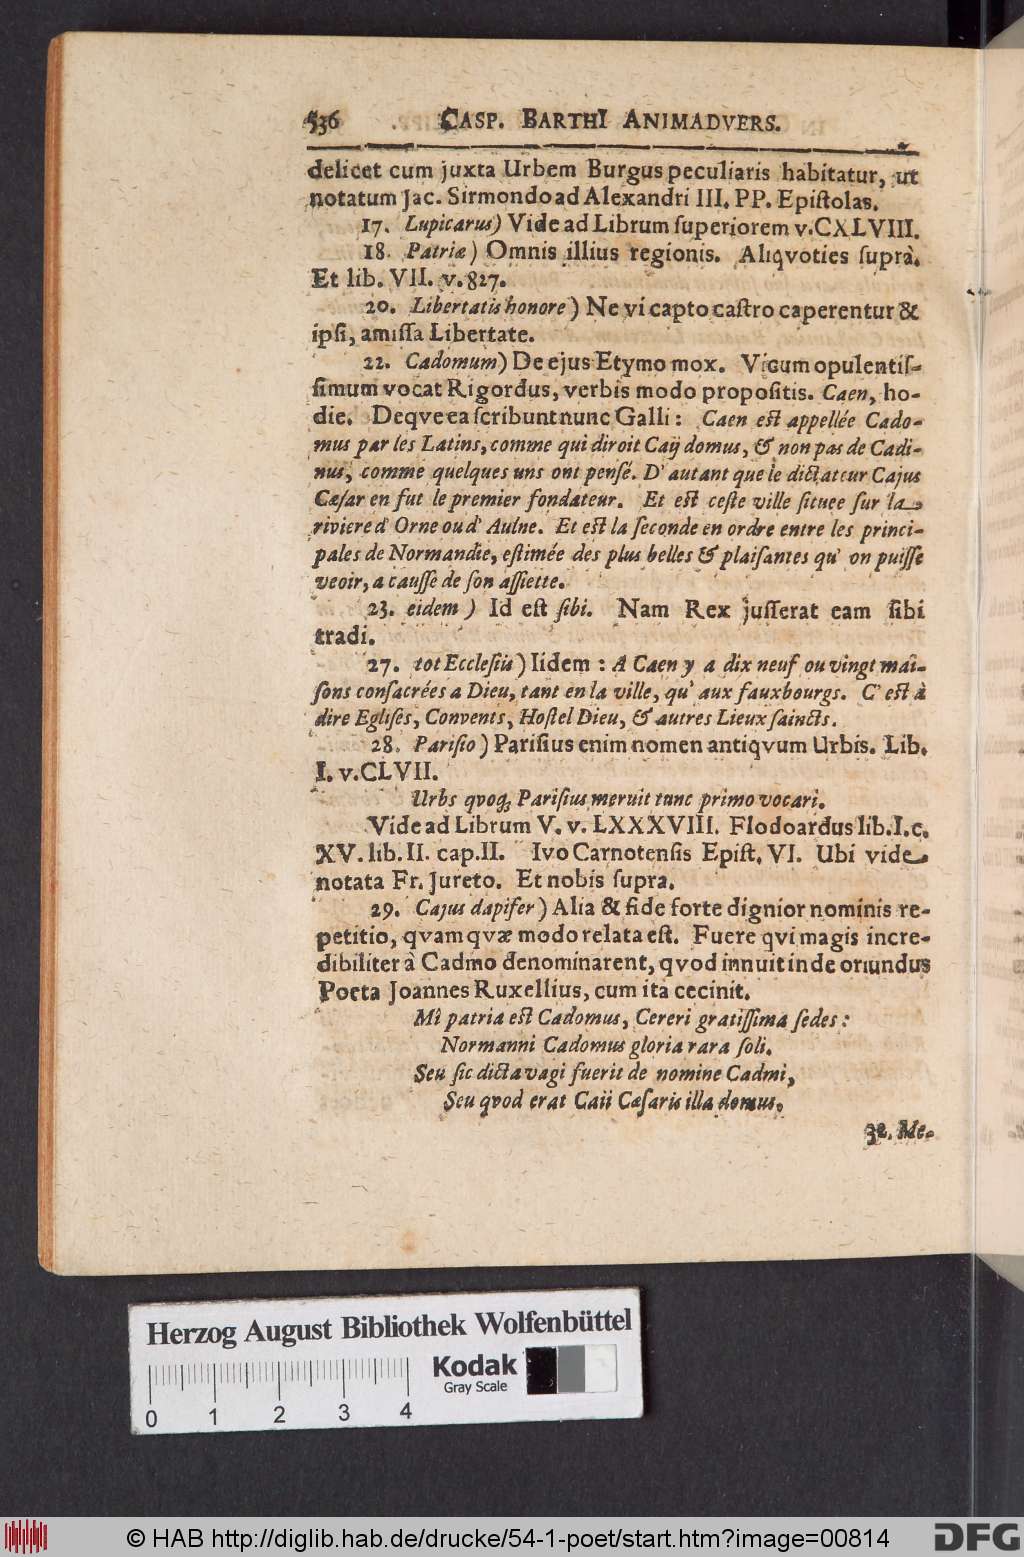 536 CASP. BARTHI ANIMADVERS.
delicet cum juxta Urbem Burgus peculiaris habitatur, ut
notatum Jac. Sirmondo ad Alexandri III. PP. Epiſtolas.
17. Lupicarus) Vide ad Librum ſuperiorem v. CXLVIII.
18. Patriæ) Omnis illius regionis. Aliqvoties ſuprà.
Et lib. VII. v. 827.
20. Libertatis honore) Ne vi capto caſtro caperentur &
ipſi, amiſſa Libertate.
22. Cadomum) De ejus Etymo mox. Vicum opulentiſ-
ſimum vocat Rigordus, verbis modo propoſitis. Caen, ho-
die. Deqve ea ſcribunt nunc Galli: Caen eſt appellée Cado-
mus par les Latins, comme qui diroit Caij domus, & non pas de Cadi-
nus, comme quelques uns ont penſé. D' autant que le dictateur Cajus
Cæſar en fut le premier fondateur. Et eſt ceſte ville ſituee ſur la
riviere d' Orne ou d' Aulne. Et eſt la ſeconde en ordre entre les princi-
pales de Normandie, eſtimée des plus belles & plaiſantes qu' on puiſſe
veoir, a cauſſe de ſon aſſiette.
23. eidem) Id eſt ſibi. Nam Rex juſſerat eam ſibi
tradi.
27. tot Eccleſiis) Iidem: A Caen y a dix neuf ou vingt mai-
ſons conſacrées a Dieu, tant en la ville, qu' aux fauxbourgs. C' eſt à
dire Egliſes, Convents, Hoſtel Dieu, & autres Lieux ſaincts.
28. Pariſio) Pariſius enim nomen antiqvum Urbis. Lib.
I. v. CLVII.
Urbs qvoq; Pariſius meruit tunc primo vocari.
Vide ad Librum V. v. LXXXVIII. Flodoardus lib. I. c.
XV. lib. II. cap. II. Ivo Carnotenſis Epiſt. VI. Ubi vide
notata Fr. Jureto. Et nobis ſupra.
29. Cajus dapifer) Alia & fide forte dignior nominis re-
petitio, qvam qvæ modo relata eſt. Fuere qvi magis incre-
dibiliter à Cadmo denominarent, qvod innuit inde oriundus
Poeta Joannes Ruxellius, cum ita cecinit.
Mî patria eſt Cadomus, Cereri gratiſſima ſedes:
Normanni Cadomus gloria rara ſoli.
Seu ſic dicta vagi fuerit de nomine Cadmi,
Seu qvod erat Caii Cæſaris illa domus.
32. Me-
Herzog August Bibliothek Wolfenbüttel
Kodak
Gray Scale
0 1 2 3 4
© HAB http://diglib.hab.de/drucke/54-1-poet/start.htm?image=00814
DFG